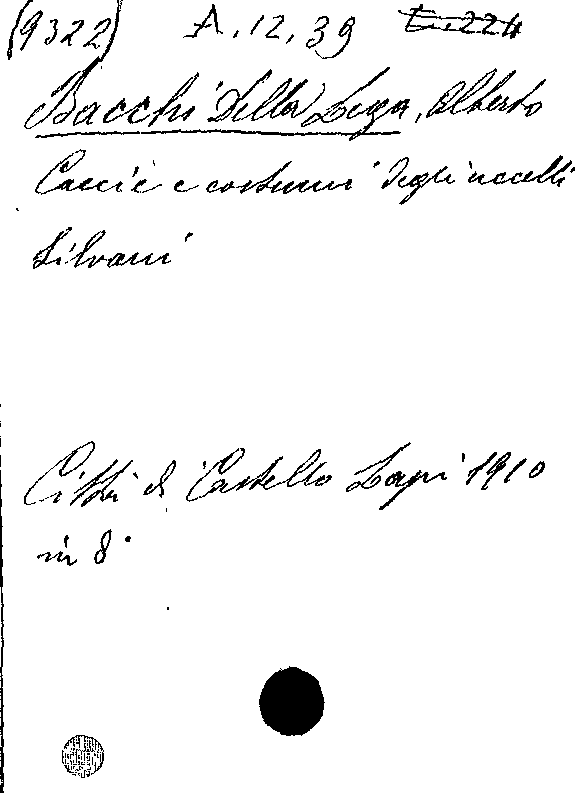 (9322) A.12.39 E.224
Bacchi Della Lega, Alberto
Caccie e costumi degli uccelli
silvani
Città di Castello Lapi 1910
in 8°